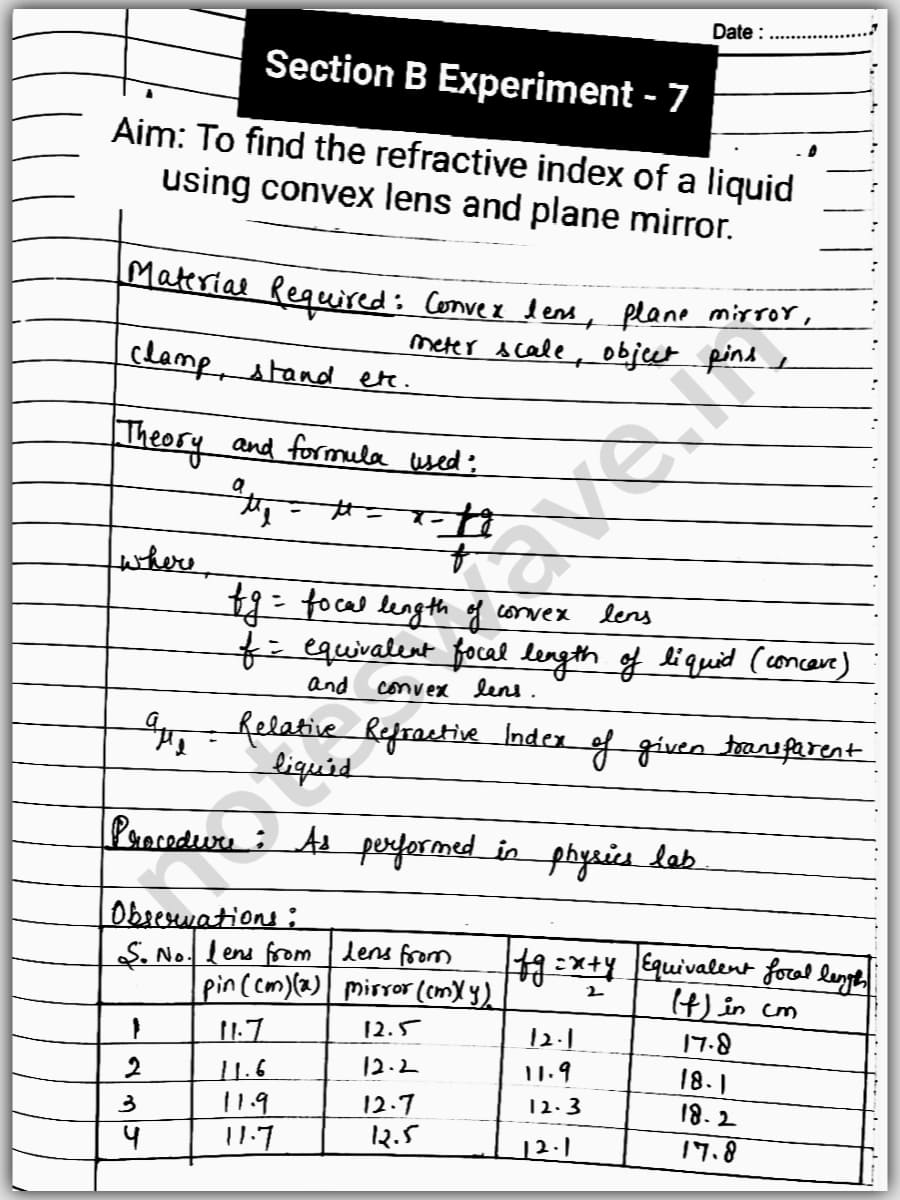 Date : ...................
Section B Experiment - 7
Aim: To find the refractive index of a liquid
using convex lens and plane mirror.
Material Required: Convex lens, plane mirror,
meter scale, object pins,
clamp, stand etc.
Theory and formula used:
ᵃμₗ = μ = x - fg / f
where,
fg = focal length of convex lens
f = equivalent focal length of liquid (concave)
and convex lens.
ᵃμₗ = Relative Refractive Index of given transparent
liquid
Procedure: As performed in physics lab.
Observations:
S. No. | lens from pin (cm)(x) | lens from mirror (cm)(y) | fg = x+y / 2 | Equivalent focal length (f) in cm
1 | 11.7 | 12.5 | 12.1 | 17.8
2 | 11.6 | 12.2 | 11.9 | 18.1
3 | 11.9 | 12.7 | 12.3 | 18.2
4 | 11.7 | 12.5 | 12.1 | 17.8
noteswave.in